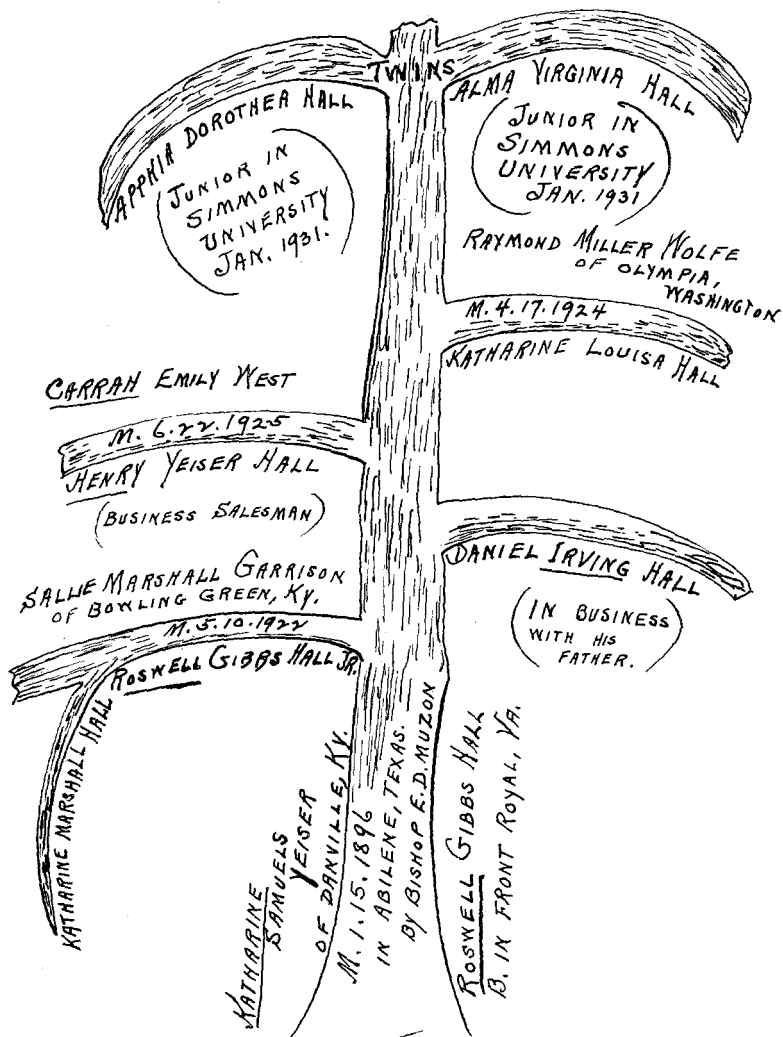 TWINS
APPHIA DOROTHEA HALL
(JUNIOR IN
SIMMONS
UNIVERSITY
JAN. 1931.)
ALMA VIRGINIA HALL
(JUNIOR IN
SIMMONS
UNIVERSITY
JAN. 1931)
RAYMOND MILLER WOLFE
OF OLYMPIA,
WASHINGTON
M. 4.17.1924
KATHARINE LOUISA HALL
CARRAH EMILY WEST
M. 6.22.1925
HENRY YEISER HALL
(BUSINESS SALESMAN)
DANIEL IRVING HALL
(IN BUSINESS
WITH HIS
FATHER.)
SALLIE MARSHALL GARRISON
OF BOWLING GREEN, KY.
M. 5.10.1922
ROSWELL GIBBS HALL JR.
KATHARINE MARSHALL HALL
KATHARINE
SAMUELS
YEISER
OF DANVILLE, KY.
M. 1.15.1896
IN ABILENE, TEXAS.
BY BISHOP E.D. MUZON
ROSWELL GIBBS HALL
B. IN FRONT ROYAL, VA.